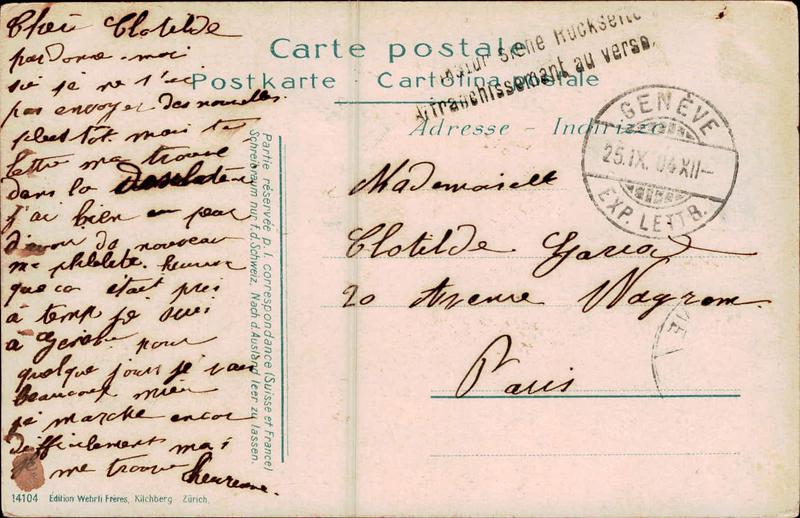 Cher Clotilde
pardone-moi
si je ne t'ai
pas envoyer des nouvelles
plus tot mais ta
lettre ma trouve
dans la
j'ai bien eu peur
d'avoir de nouveau
ma phlebite. heureuse
que ca était pris
à temp je suis
à Genève pour
quelque jours je vais
beaucoup mieu
je marche encor
difficilement mai
je me trouve heureuse.
14104 Edition Wehrli Frères, Kilchberg Zürich.
Partie réservée p. l. correspondance (Suisse et France)
Schreibraum nur f. d. Schweiz. Nach d. Ausland leer zu lassen.
Carte postale
Postkarte - Cartolina postale
siehe Rückseite
Affranchissement au verso.
Adresse - Indirizzo
GENÈVE
25.IX.04 XII-
EXP. LETTR.
Mademoiselle
Clotilde
20 Avenue Wagram.
Paris